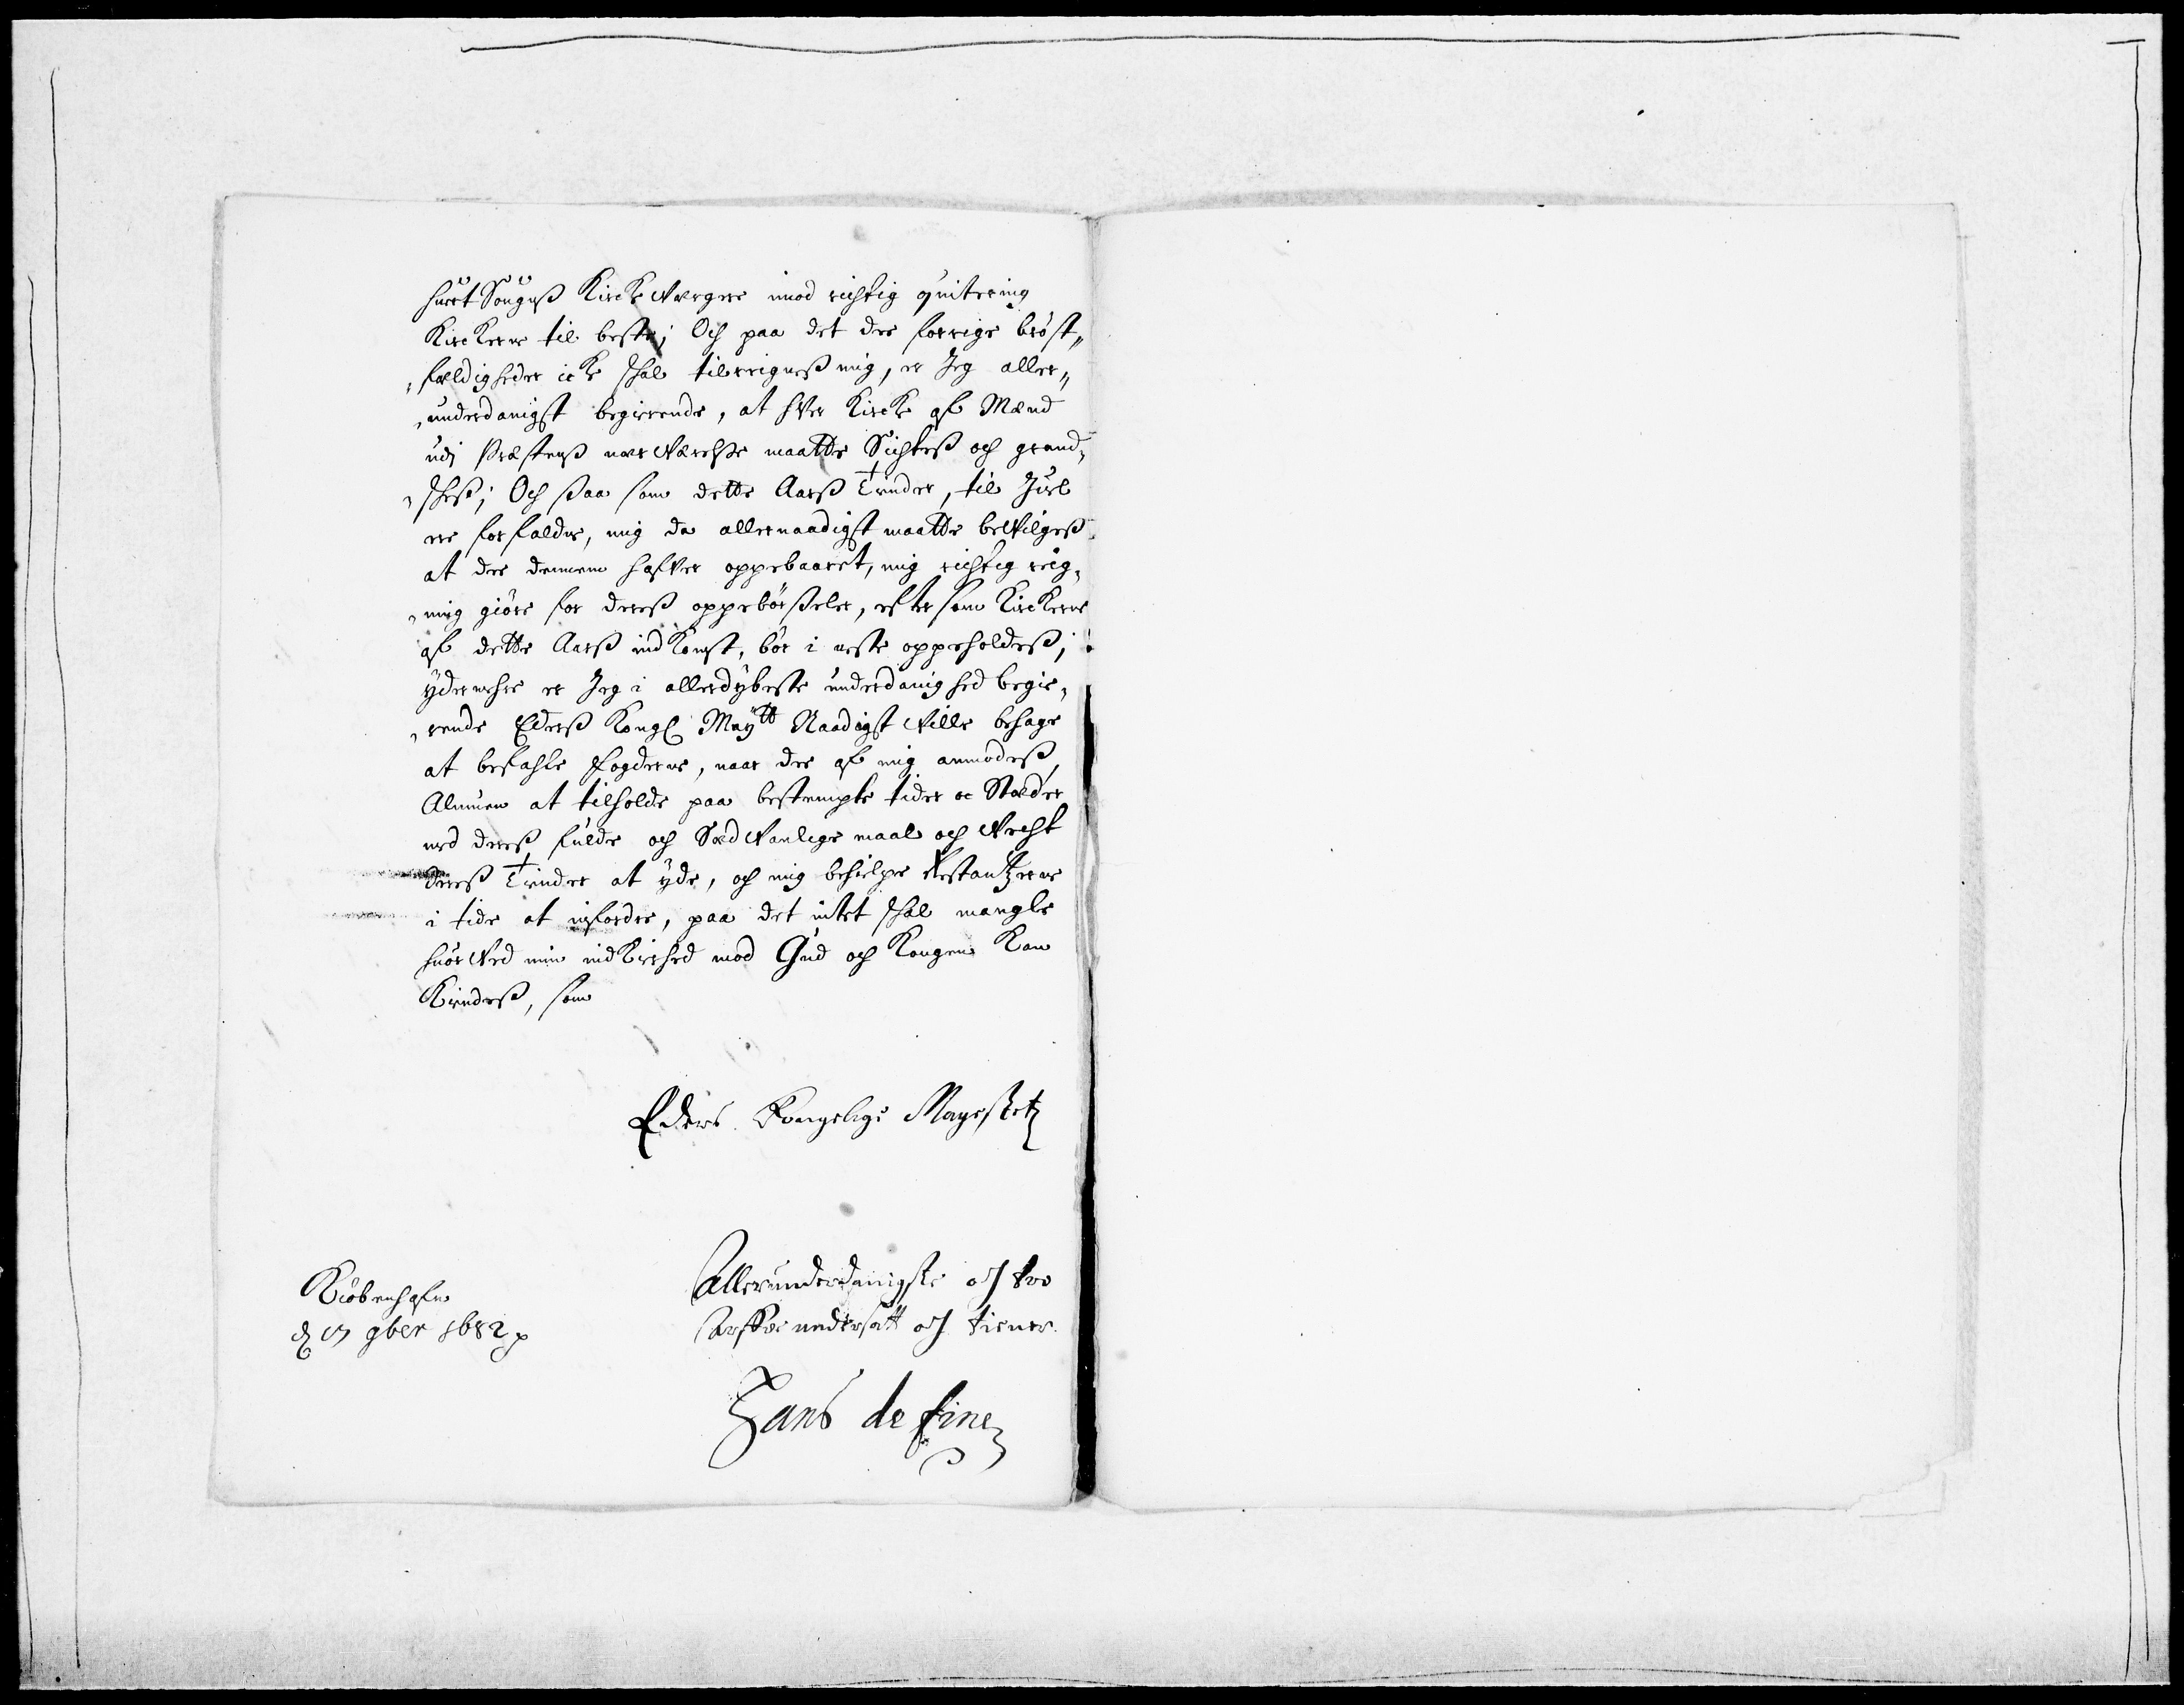 huert Sougnß Kircke Værgere imod richtig quitering
Kirckerne til beste; Och paa det dee forrige bröst„
„fældigheder icke skal tilreigneß mig, er Jeg aller„
„underdanigst begierende, at hver Kircke af Mænd
udj Præstenß nærværelße maatte Sichteß och grand„
„skeß; Och ßaa som dette Aarß Tiender, til Juel
ere forfalden, mig da allernaadigst maatte bevilgeß
at dee dennem hafver oppebaaret, mig richtig reig„
„ning giöre for dereß oppebörßeler, efter som Kirckerne
af dette Aarß indkomst, bör i neste oppeholdeß;
ydermehre er Jeg i allerdybeste underdanighed begie„
„rende Ederß Kongl Maytt Naadigst ville behage
at befahle Fogderne, naar dee af mig anmodeß,
Almuen at tilholde paa bestempte tider oc Stæder
med dereß fulde och Sædvanlige maal och Vecht
dereß Tiender at yde, och mig behielpe Restantzerne
i tide at indfordre, paa det intet skal mangle
huorved min nidkierhed mod Gud och Kongen Kan
Kiendeß, som
Eders Kongelige Mayestetz
Allerunderdanigste och troe
Arffve undersaatt och tiener.
Kiöbenhafn
d 17 9ber 1682
Hans de fine